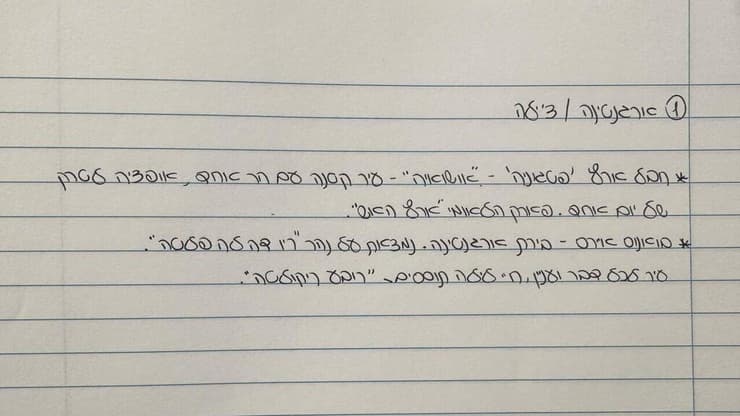 ① ארגנטינה / צ'ילה
* חבל ארץ 'פטגוניה' - "אושוואיה" - עיר קטנה עם הר אחד, אופציה לטרק
של יום אחד. פארק הלאומי "ארץ האש".
* בואנוס איירס - בירת ארגנטינה. נמצאת על נהר "ריו דה לה פלטה".
עיר לכל דבר ועניין, חיי לילה תוססים, "רובע ריקולטה".